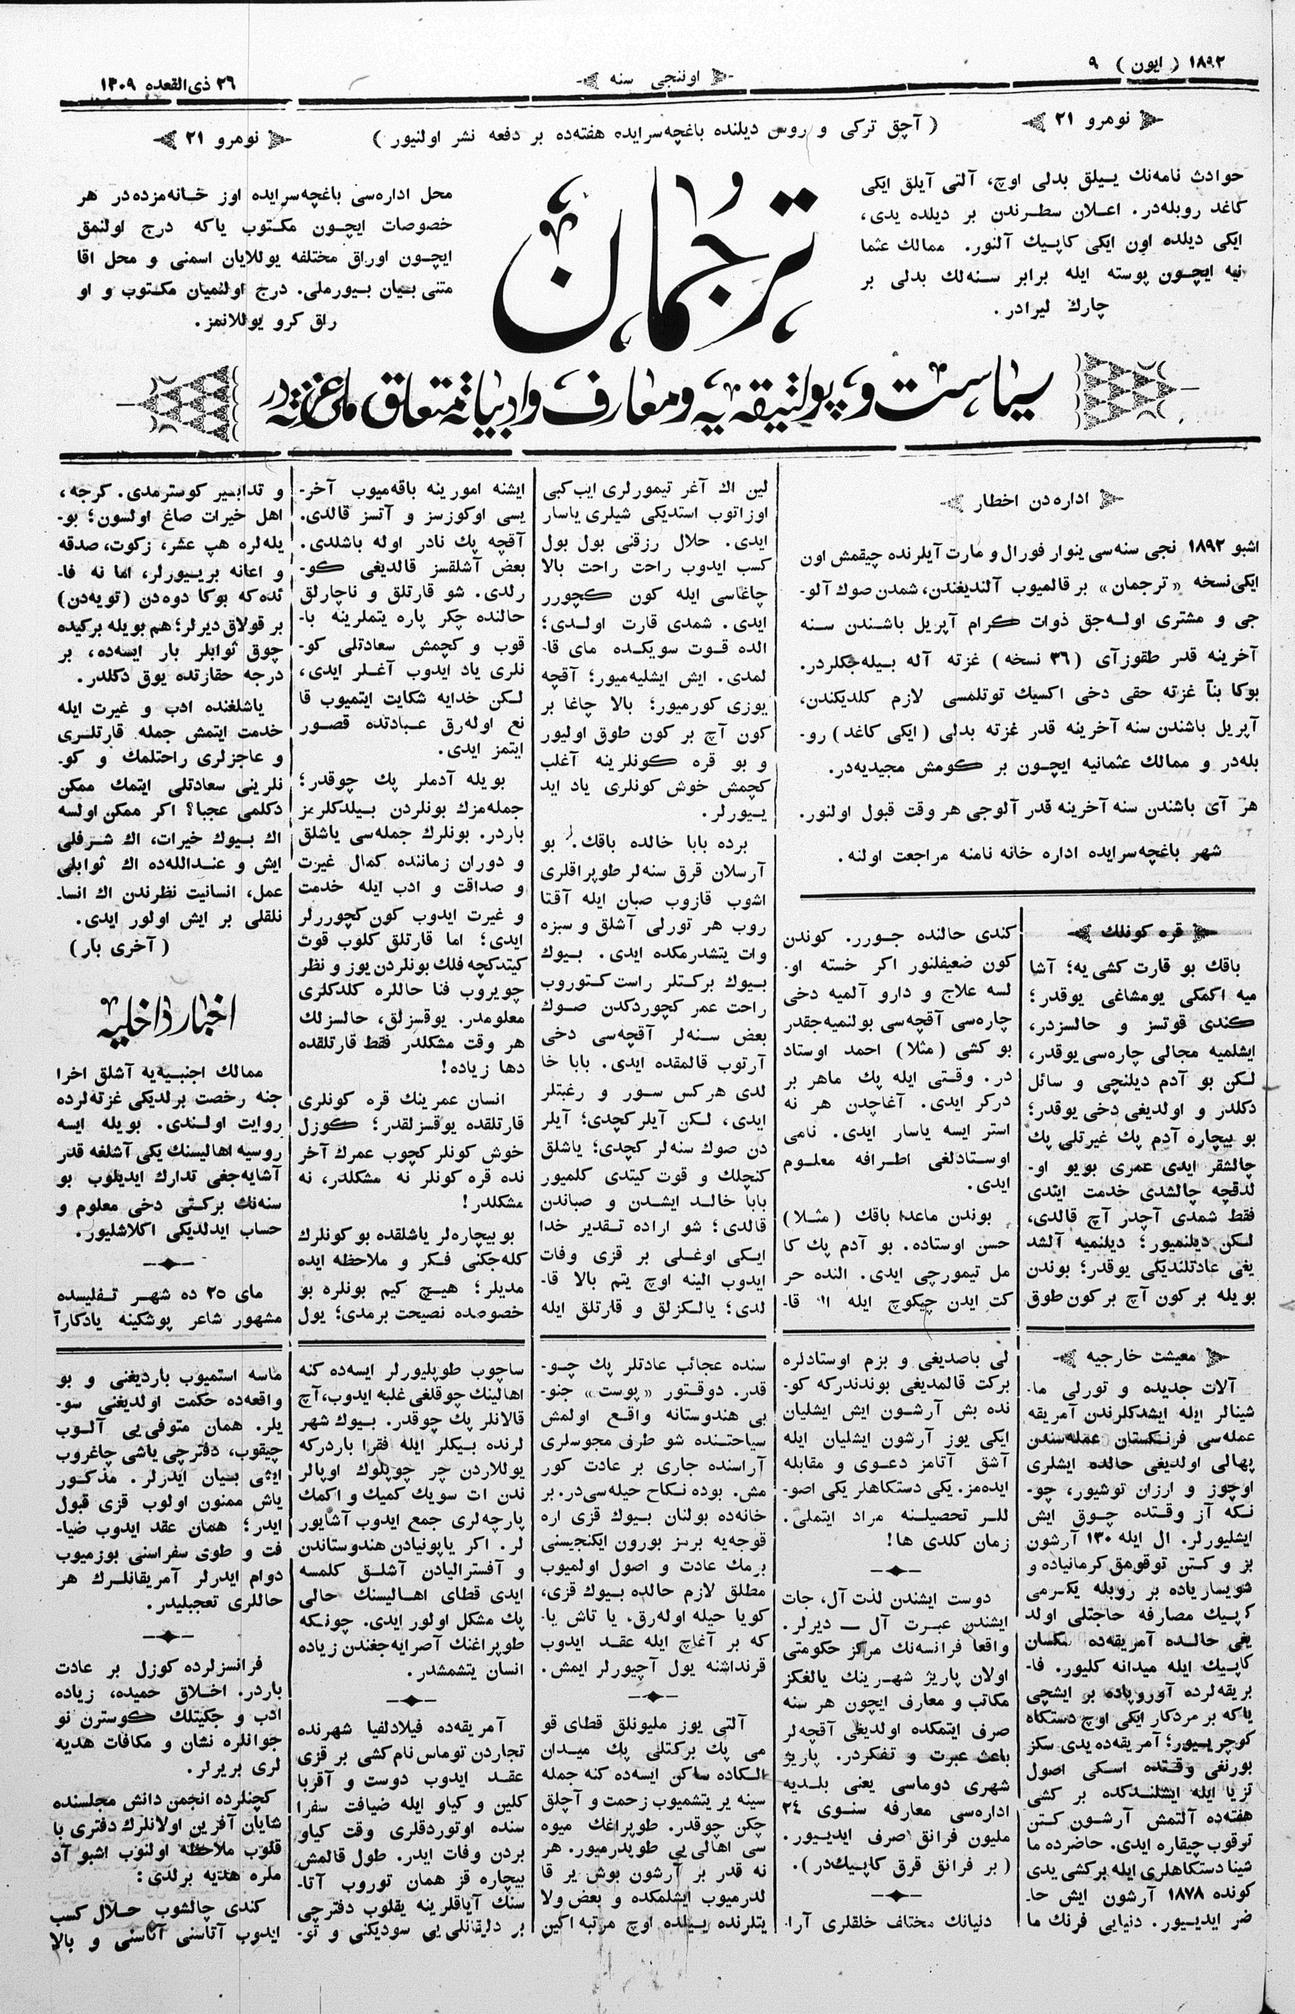 ١٨٩٢ ( ایون ) ٩
اوننجی سنه
٢٦ ذی القعده ١٣٠٩
نومرو ٢١
( آچق ترکی و روس دیلنده باغچه‌سرایده هفته‌ده بر دفعه نشر اولنیور )
نومرو ٢١
حوادث نامه‌نك ییلق بدلی اوچ، آلتی آیلق ایکی
کاغد روبله‌در. اعلان سطرندن بر دیلده یدی،
ایکی دیلده اون ایکی کاپیك آلنور. ممالك عثما
نیه ایچون پوسته ایله برابر سنه‌لك بدلی بر
چارك لیرادر.
ترجمان
محل اداره‌سی باغچه‌سرایده اوز خانه‌مزده‌در هر
خصوصات ایچون مکتوب یاکه درج اولنمق
ایچون اوراق مختلفه یوللایان اسمنی و محل اقا
متنی بیان بیورملی. درج اولنمیان مکتوب و او
راق کرو یوللانمز.
سیاست و پولتیقه‌یه و معارف و ادبیاته متعلق ملی غزته‌در
اداره‌دن اخطار
اشبو ١٨٩٢ نجی سنه‌سی ینوار فورال و مارت آیلرنده چیقمش اون
ایکی نسخه «ترجمان» بر قالمیوب آلندیغندن، شمدن صوك آلو-
جی و مشتری اوله‌جق ذوات کرام آپریل باشندن سنه
آخرینه قدر طقوزآی (٣٦ نسخه) غزته آله بیله‌جکلردر.
بوکا بنآ غزته حقی دخی اکسیك توتلمسی لازم کلدیکندن،
آپریل باشندن سنه آخرینه قدر غزته بدلی (ایکی کاغد) رو-
بله‌در و ممالك عثمانیه ایچون بر کومش مجیدیه‌در.
هر آی باشندن سنه آخرینه قدر آلوجی هر وقت قبول اولنور.
شهر باغچه‌سرایده اداره خانه نامنه مراجعت اولنه.
قره کونلك
باقك بو قارت کشی‌یه؛ آشا
میه اکمکی یومشاغی یوقدر؛
کندی قوتسز و حالسزدر،
ایشلمیه مجالی چاره‌سی یوقدر،
لکن بو آدم دیلنچی و سائل
دکلدر و اولدیغی دخی یوقدر؛
بو بیچاره آدم پك غیرتلی پك
چالشقر ایدی عمری بویو او-
لدقچه چالشدی خدمت ایتدی
فقط شمدی آچدر آچ قالدی،
لکن دیلنمیور؛ دیلنمیه آلشد
یغی عادتلندیکی یوقدر؛ بوندن
بویله بر کون آچ بر کون طوق
کندی حالنده جورر. کوندن
کون ضعیفلنور اکر خسته او-
لسه علاج و دارو آلمیه دخی
چاره‌سی آقچه‌سی بولنمیه‌جقدر
بو کشی (مثلا) احمد اوستاد
در. وقتی ایله پك ماهر بر
درکر ایدی. آغاچدن هر نه
استر ایسه یاسار ایدی. نامی
اوستادلغی اطرافه معلوم
ایدی.
بوندن ماعدا باقك (مثلا)
حسن اوستاده. بو آدم پك کا
مل تیمورچی ایدی. النده حر
کت ایدن چکوچ ایله ١١ قا-
لین اك آغر تیمورلری ایب کبی
اوزاتوب استدیکی شیلری یاسار
ایدی. حلال رزقنی بول بول
کسب ایدوب راحت راحت بالا
چاغاسی ایله کون کچورر
ایدی. شمدی قارت اولدی؛
الده قوت سویکده مای قا-
لمدی. ایش ایشلیه‌میور؛ آقچه
یوزی کورمیور؛ بالا چاغا بر
کون آچ بر کون طوق اولیور
و بو قره کونلرینه آغلب
کچمش خوش کونلری یاد اید
یورلر.
برده بابا خالده باقك. بو
آرسلان قرق سنه‌لر طوپراقلری
اشوب قازوب صبان ایله آقتا
روب هر تورلی آشلق و سبزه
وات یتشدرمکده ایدی. بیوك
بیوك برکتلر راست کتوروب
راحت عمر کچوردکدن صوك
بعض سنه‌لر آقچه‌سی دخی
آرتوب قالمقده ایدی. بابا خا
لدی هرکس سور و رغبتلر
ایدی، لکن آیلر کچدی؛ آیلر
دن صوك سنه‌لر کچدی؛ یاشلق
کنچلك و قوت کیتدی کلمیور
بابا خالد ایشدن و صباندن
قالدی؛ شو اراده تقدیر خدا
ایکی اوغلی بر قزی وفات
ایدوب الینه اوچ یتم بالا قا-
لدی؛ یالکزلق و قارتلق ایله
ایشنه امورینه باقه‌میوب آخر-
یسی اوکوزسز و آتسز قالدی.
آقچه پك نادر اوله باشلدی.
بعض آشلقسز قالدیغی کو-
رلدی. شو قارتلق و ناچارلق
حالنده چکر پاره یتملرینه با-
قوب و کچمش سعادتلی کو-
نلری یاد ایدوب آغلر ایدی،
لکن خدایه شکایت ایتمیوب قا
نع اوله‌رق عبادتده قصور
ایتمز ایدی.
بویله آدملر پك چوقدر؛
جمله‌مزك بونلردن بیلدکلریمز
باردر. بونلرك جمله‌سی یاشلق
و دوران زماننده کمال غیرت
و صداقت و ادب ایله خدمت
و غیرت ایدوب کون کچوررلر
ایدی؛ اما قارتلق کلوب قوت
کیتدکچه فلك بونلردن یوز و نظر
چویروب فنا حاللره کلدکلری
معلومدر. یوقسزلق، حالسزلك
هر وقت مشکلدر فقط قارتلقده
دها زیاده!
انسان عمرینك قره کونلری
قارتلقده یوقسزلقدر؛ کوزل
خوش کونلر کچوب عمرك آخر
نده قره کونلر نه مشکلدر، نه
مشکلدر!
بو بیچاره‌لر یاشلقده بو کونلرك
کله‌جکنی فکر و ملاحظه ایده
مدیلر؛ هیچ کیم بونلره بو
خصوصده نصیحت برمدی؛ یول
و تدابیر کوسترمدی. کرچه،
اهل خیرات صاغ اولسون؛ بو-
یله‌لره هپ عشر، زکوت، صدقه
و اعانه بریورلر، اما نه فا-
ئده‌که بوکا دوه‌دن (تویه‌دن)
بر قولاق دیرلر؛ هم بویله برکیده
چوق ثوابلر بار ایسه‌ده، بر
درجه حقارتده یوق دکلدر.
یاشلغنده ادب و غیرت ایله
خدمت ایتمش جمله قارتلری
و عاجزلری راحتلمك و کو-
نلرینی سعادتلی ایتمك ممکن
دکلمی عجبا؟ اکر ممکن اولسه
اك بیوك خیرات، اك شرفلی
ایش و عندالله‌ده اك ثوابلی
عمل، انسانیت نظرندن اك انسا-
نلقلی بر ایش اولور ایدی.
( آخری بار )
اخبار داخلیه
ممالك اجنبیه‌یه آشلق اخرا
جنه رخصت برلدیکی غزته‌لرده
روایت اولندی. بویله ایسه
روسیه اهالیسنك یکی آشلغه قدر
آشایه‌جغی تدارك ایدیلوب بو
سنه‌نك برکتی دخی معلوم و
حساب ایدلدیکی اکلاشلیور.
مای ٢٥ ده شهر تفلیسده
مشهور شاعر پوشکینه یادکارآ
معیشت خارجیه
آلات جدیده و تورلی ما-
شینالر ایله ایشدکلرندن آمریقه
عمله‌سی فرنکستان عمله‌سندن
پهالی اولدیغی حالده ایشلری
اوچوز و ارزان توشیور، چو-
نکه آز وقتده چوق ایش
ایشلیورلر. ال ایله ١٣٠ آرشون
بز و کتن توقومق کرمانیاده و
شویساریاده بر روبله یکرمی
کپیك مصارفه حاجتلی اولد
یغی حالده آمریقه‌ده سکسان
کاپیك ایله میدانه کلیور. فا-
بریقه‌لرده آوروپاده بر ایشچی
یاکه بر مردکار ایکی اوچ دستکاه
کوچریور؛ آمریقه‌ده یدی سکز
بورنغی وقتده اسکی اصول
تزپا ایله ایشلندکده بر کشی
هفته‌ده آلتمش آرشون کتن
توقوب چیقاره ایدی. حاضرده ما
شینا دستکاهلری ایله برکشی یدی
کونده ١٨٧٨ آرشون ایش حا-
ضر ایدیور. دنیایی فرنك ما
لی باصدیغی و بزم اوستادلره
برکت قالمدیغی بوندندرکه کو-
نده بش آرشون ایش ایشلیان
ایکی یوز آرشون ایشلیان ایله
آشق آتامز دعوی و مقابله
ایده‌مز. یکی دستکاهلر یکی اصو-
للر تحصیلنه مراد ایتملی.
زمان کلدی ها!
دوست ایشندن لذت آل، جات
ایشندن عبرت آل — دیرلر.
واقعا فرانسه‌نك مرکز حکومتی
اولان پاریژ شهرینك یالغکز
مکاتب و معارف ایچون هر سنه
صرف ایتمکده اولدیغی آقچه‌لر
باعث عبرت و تفکردر. پاریژ
شهری دوماسی یعنی بلدیه
اداره‌سی معارفه سنوی ٢٤
ملیون فرانق صرف ایدیور.
( بر فرانق قرق کاپیك‌در).
دنیانك مختلف خلقلری آرا-
سنده عجائب عادتلر پك چو-
قدر. دوقتور «پوست» جنو-
بی هندوستانه واقع اولمش
سیاحتنده شو طرف مجوسلری
آراسنده جاری بر عادت کور
مش. بوده نکاح حیله‌سی‌در. بر
خانه‌ده بولنان بیوك قزی اره
قوجه‌یه برمز بورون ایکنجیسنی
برمك عادت و اصول اولمیوب
مطلق لازم حالده بیوك قزی،
کویا حیله اوله‌رق، یا تاش یا-
که بر آغاچ ایله عقد ایدوب
قرنداشنه یول آچیورلر ایمش.
آلتی یوز ملیونلق قطای قو
می پك برکتلی پك میدان
الکاده ساکن ایسه‌ده کنه جمله
سینه یر یتشمیوب زحمت و آچلق
چکن چوقدر. طوپراغك میوه
سی اهالی‌یی طویدرمیور. هر
نه قدر بر آرشون بوش یر قا
لدرمیوب ایشلمکده و بعض ولا
یتلرنده ییلده اوچ مرتبه اکین
ساچوب طوپلیورلر ایسه‌ده کنه
اهالینك چوقلغی غلبه ایدوب، آچ
قالانلر پك چوقدر. بیوك شهر
لرنده بیکلر ایله فقرا باردرکه
یوللاردن چر چوپلوك اوپالر
ندن ات سویك کمیك و اکمك
پارچه‌لری جمع ایدوب آشایور
لر. اکر یاپونیادن هندوستاندن
و آفسترالیادن آشلق کلمسه
ایدی قطای اهالیسنك حالی
پك مشکل اولور ایدی. چونکه
طوپراغنك آصرایه‌جغندن زیاده
انسان یتشمشدر.
آمریقه‌ده فیلادلفیا شهرنده
تجاردن توماس نام کشی بر قزی
عقد ایدوب دوست و آقربا
کلین و کیاو ایله ضیافت سفرا
سنده اوتوردقلری وقت کیاو
بردن وفات ایدر. طول قالمش
بیچاره قز همان توروب آتا-
سنك آیاقلرینه یقلوب دفترچی
بر دلیقانلی‌یی سودیکنی و تو-
ماسه استمیوب باردیغنی و بو
واقعه‌ده حکمت اولدیغنی سو-
یلر. همان متوفی‌یی آلوب
چیقوب، دفترچی یاشی چاغروب
ایشی بیان ایدرلر. مذکور
یاش ممنون اولوب قزی قبول
ایدر؛ همان عقد ایدوب ضیا-
فت و طوی سفراسنی بوزمیوب
دوام ایدرلر آمریقانلرك هر
حاللری تعجبلیدر.
فرانسزلرده کوزل بر عادت
باردر. اخلاق حمیده، زیاده
ادب و جکیتلك کوسترن نو
جوانلره نشان و مکافات هدیه
لری بریرلر.
کچنلرده انجمن دانش مجلسنده
شایان آفرین اولانلرك دفتری با
قلوب ملاحظه اولنوب اشبو آد
ملره هدیه برلدی:
کندی چالشوب حلال کسب
ایدوب آتاسنی آناسنی و بالا